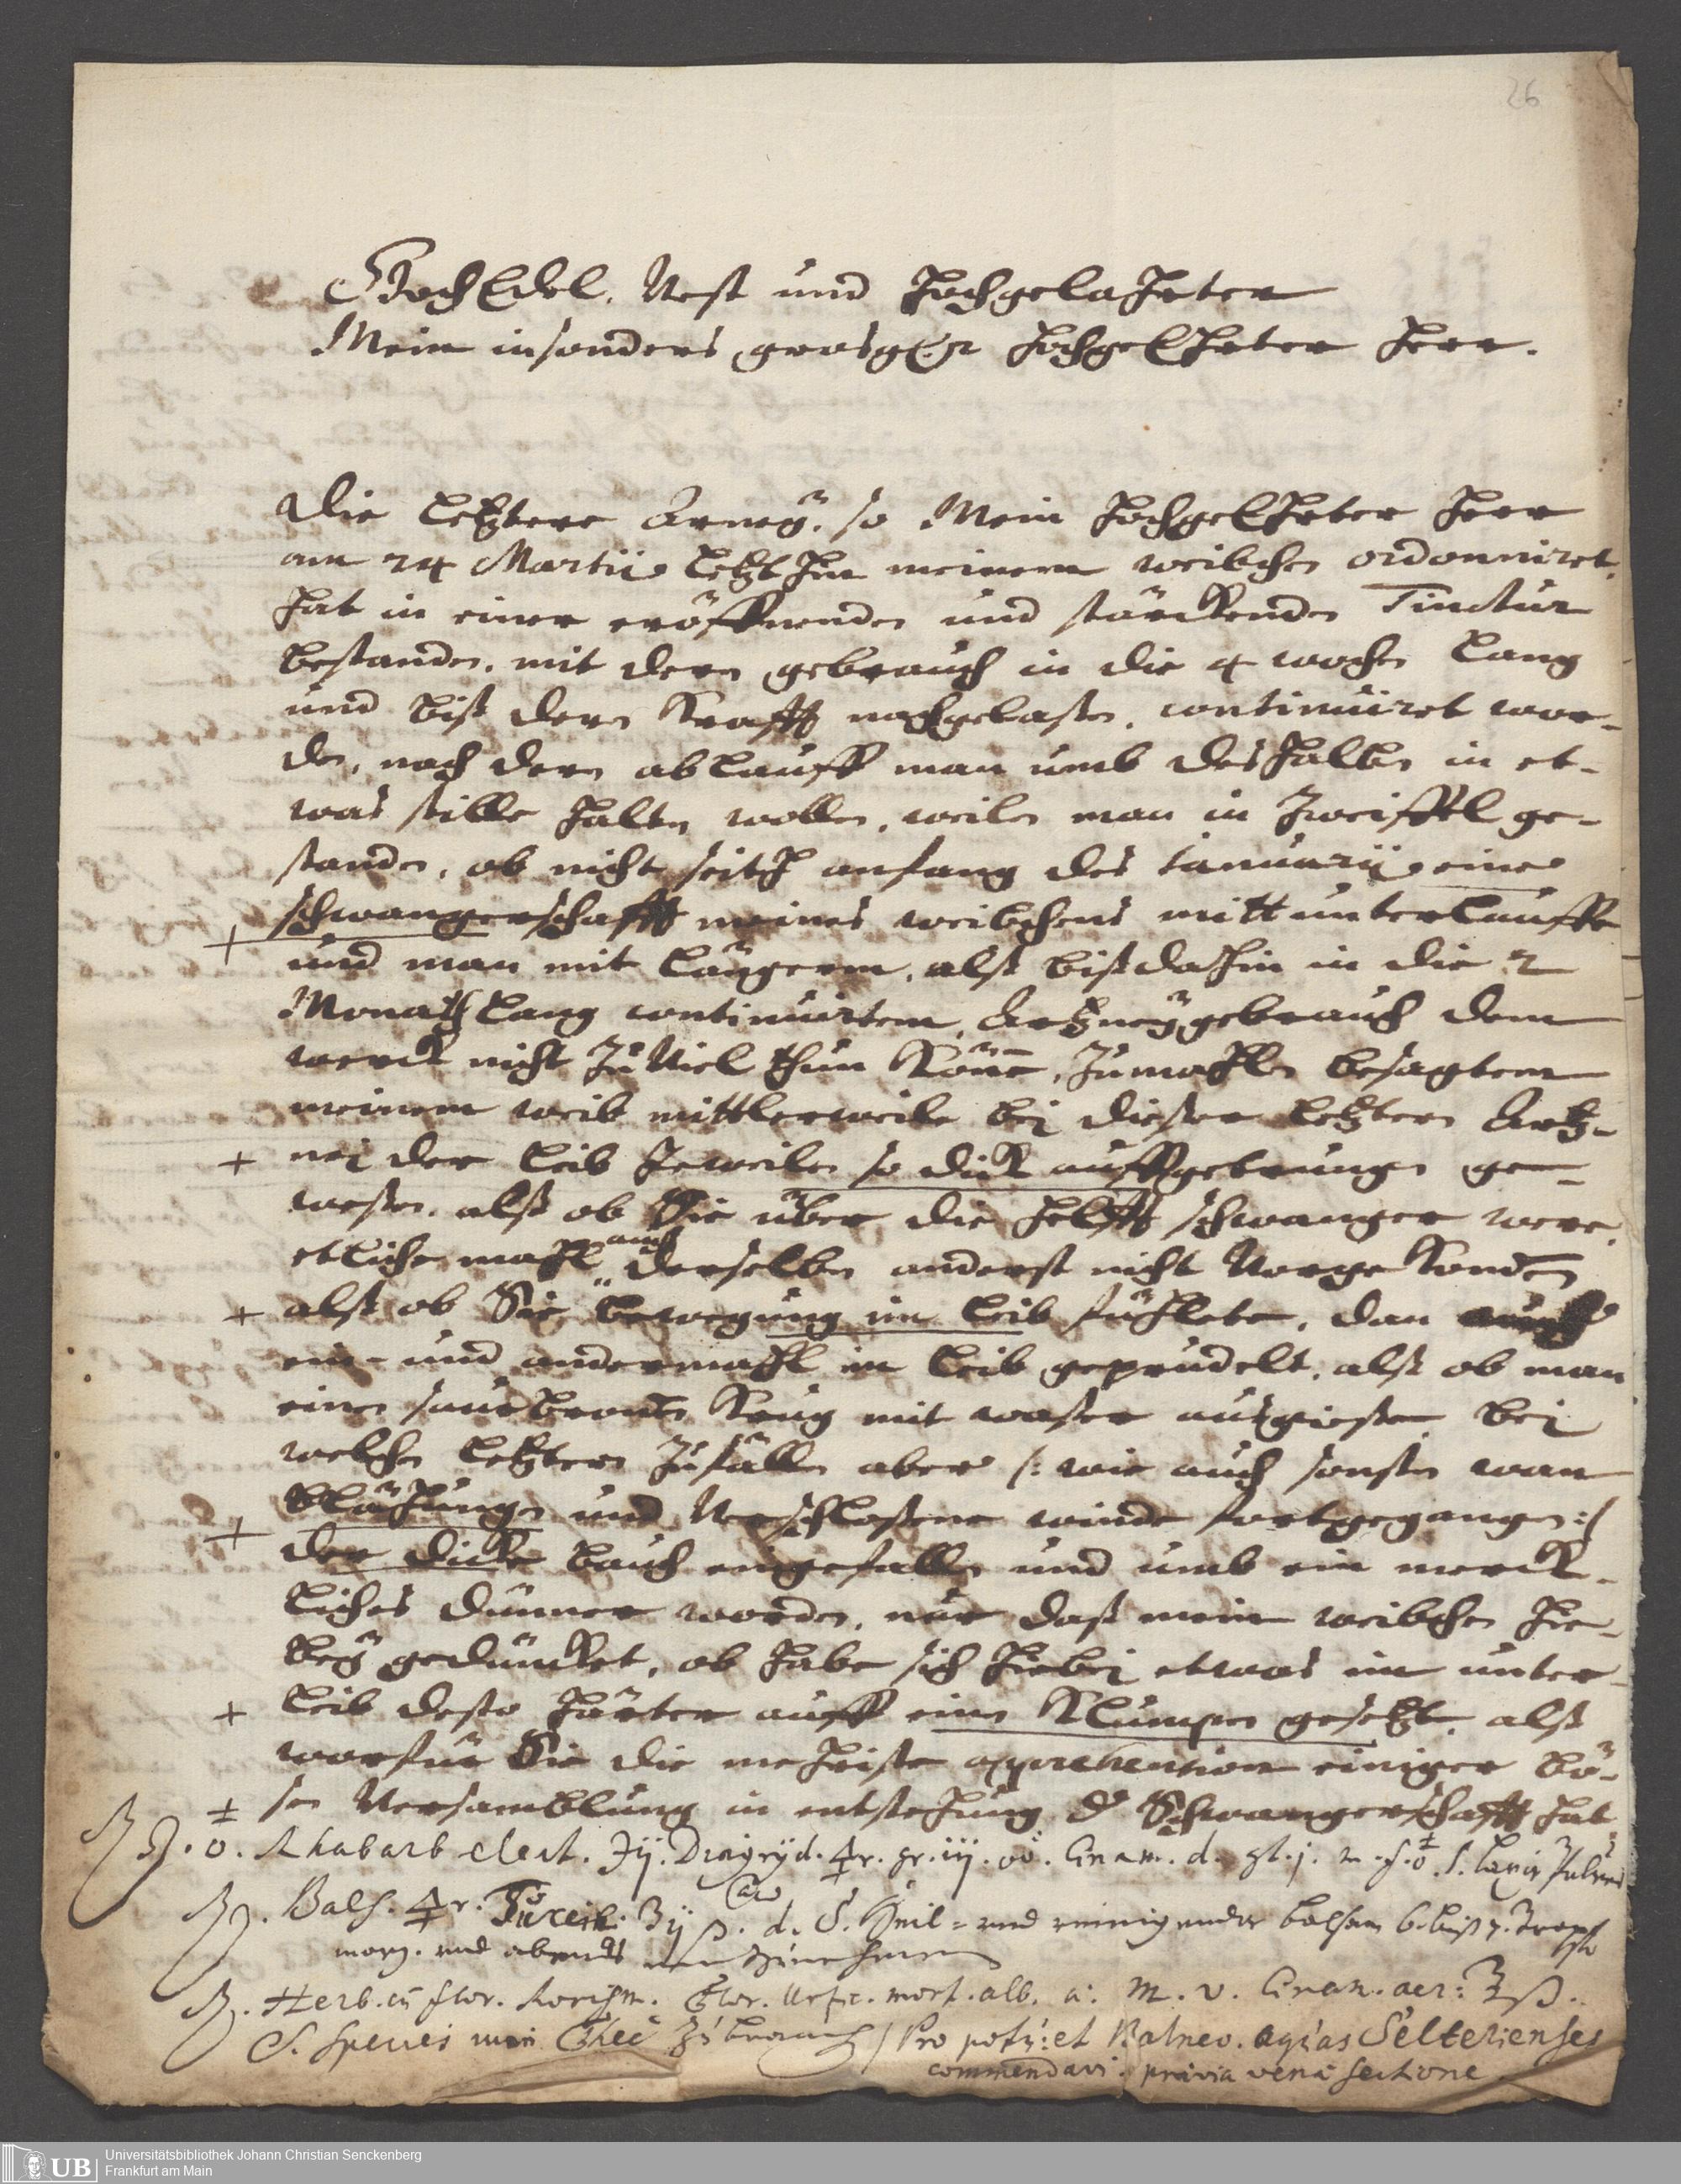 26
HochEdel. Vest und Hochgelahrter
Mein insonders grosg. Hochgeehrter Herr.
Die letztere Arney. so Mein Hochgeehrter Herr
am 24 Martii letzthin meinem weibchen ordonniret.
hat in einer eröffnenden und stärckenden Tinctur
bestanden. mit deren gebrauch in die 4 wochen lang
und biß deren Krafft nachgelaßen. continuiret wor-
den, nach deren ablauff man umb deshalben in et-
was stille halten wollen. weilen man in Zweiffel ge-
standen, ob nicht seith anfang des Januarii eine
schwangerschafft meines weibchens mitt unterlauffe
+ und man mit längerem, alß bißdahin in die 2
Monath lang continuirtem, Artzneygebrauch dem
werck nicht zu Viel thun Könne, zumahlen besagtem
meinem weib mittlerweile bei dieser letztern Artz-
+ nei der leib Jeweilen so dick auffgetrungen ge-
weßen. alß ob Sie über die helfft schwanger were.
etliche mahl auch derselben anderst nicht Vorge Konden
+ alß ob Sie bewegung im leib fühlete, dan
ein- und andermahl im leib geprudelt, alß ob man
einen saurbronnen Krug mit waßer ausgießen. bei
welchen letztern Zufällen aber /: wie auch sonsten wan
blähungen und Verschloßene winde fortgegangen :/
+ der dicke bauch eingefallen und umb ein merck-
liches dünner worden. nur daß mein weibchen hie-
bey gedüncket, ob habe sich hiebei etwas im unter
+ leib desto härter auff einen Klumpen gesetzt. alß
worfür Sie die mehriste apprehension einiger bö-
+ sen Versamblung in entstehung d Schwangerschafft hat
Rhabarb elect. Diagryd. gr. iij. d. gt. j. m. f. S. Laxir Pulver
Balf. d. S. Heil= und reinigender balsam 6. biß 7. Tropffen
morg. und abends einzunehmen
Herb. c flor. flor. Urtic. mort. alb. a: m. v.
S. Species zum Thee zu brauchen / Pro potu: et Balneo. aquas Selterienses
commendavi. prævia venæ sectione.
UB Universitätsbibliothek Johann Christian Senckenberg
Frankfurt am Main